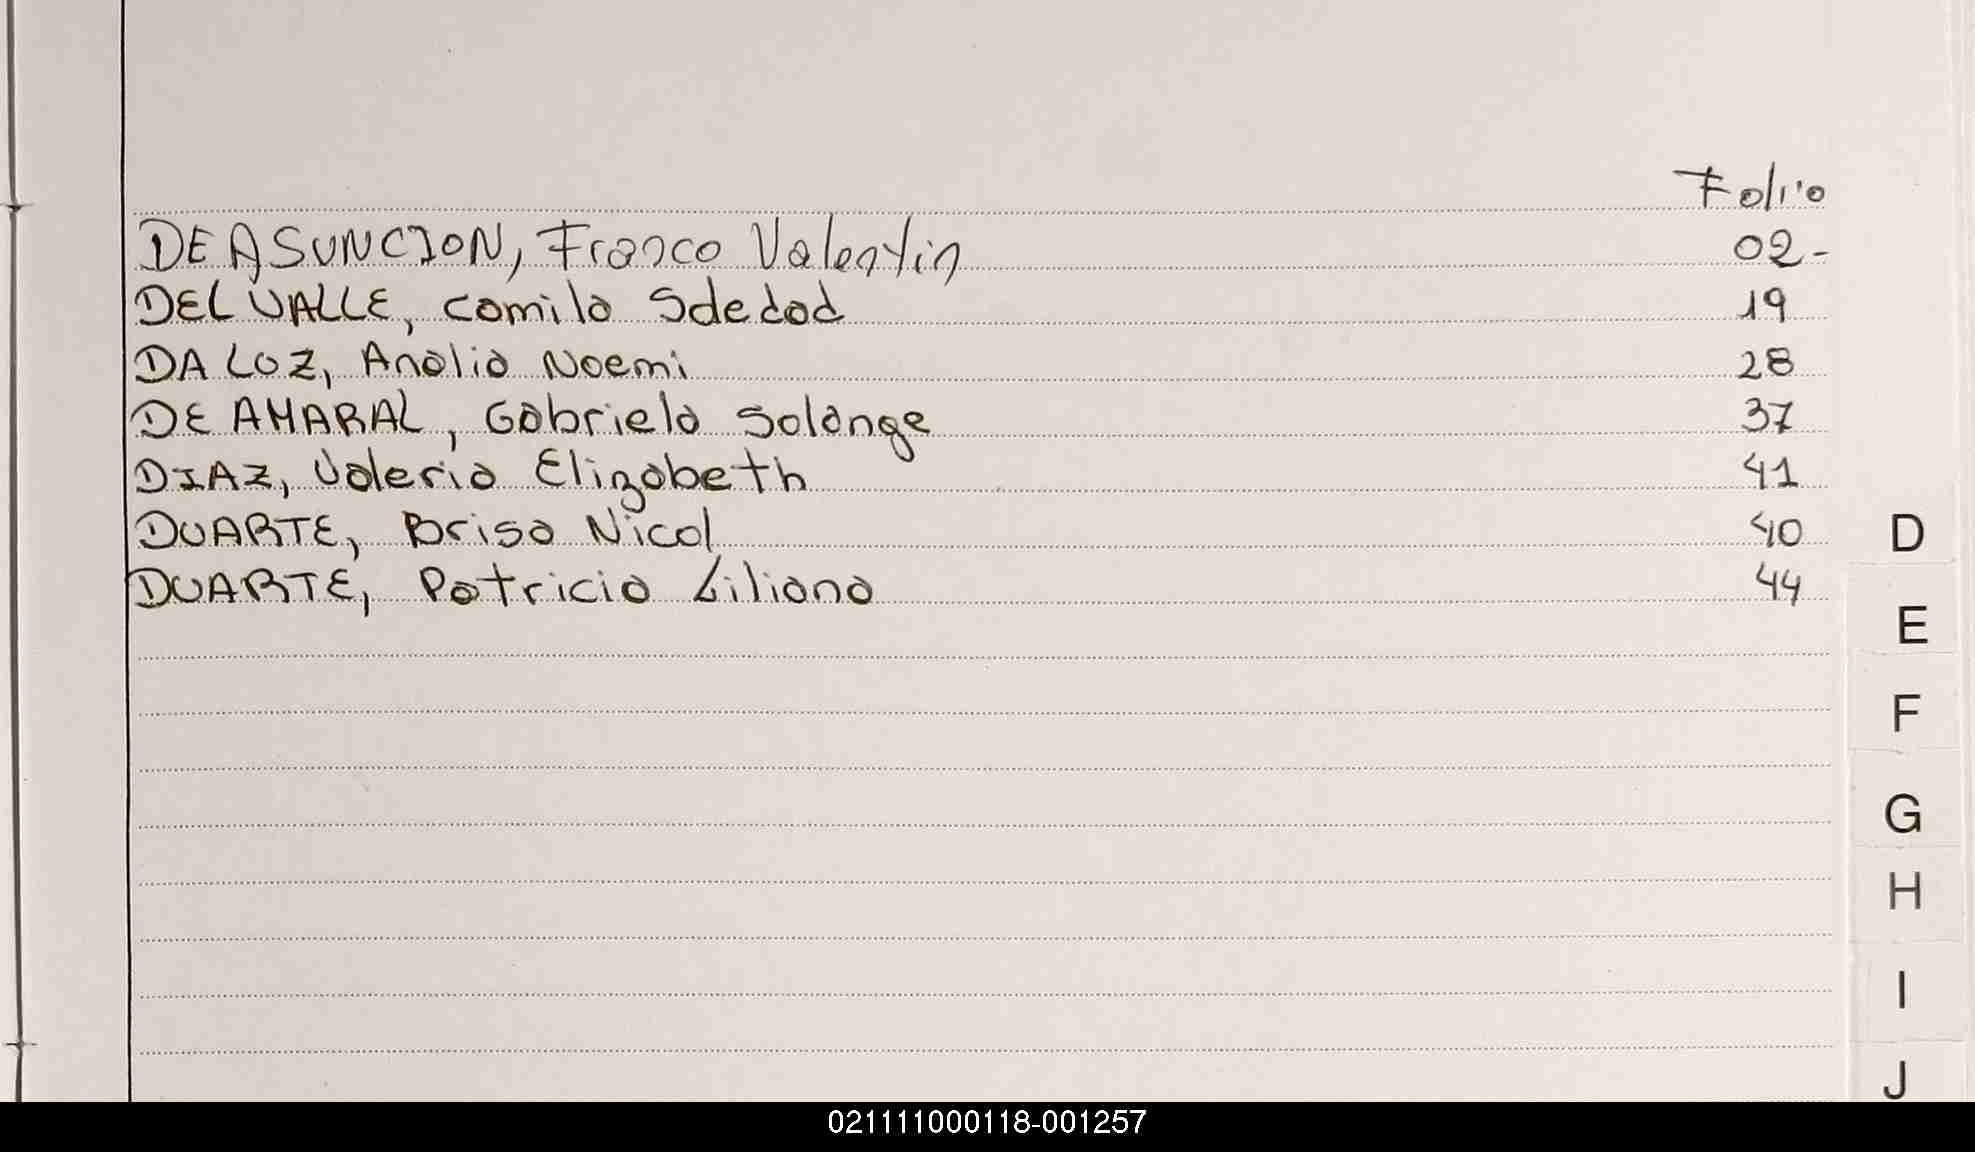 Folio
DE ASUNCION, Franco Valentin 02-
DEL VALLE, Camila Soledad 19
DA LUZ, Analia Noemi 28
DE AMARAL, Gabriela Solange 37
DIAZ, Valeria Elizabeth 41
DUARTE, Brisa Nicol 40
DUARTE, Patricia Liliana 44
D
E
F
G
H
I
J
021111000118-001257